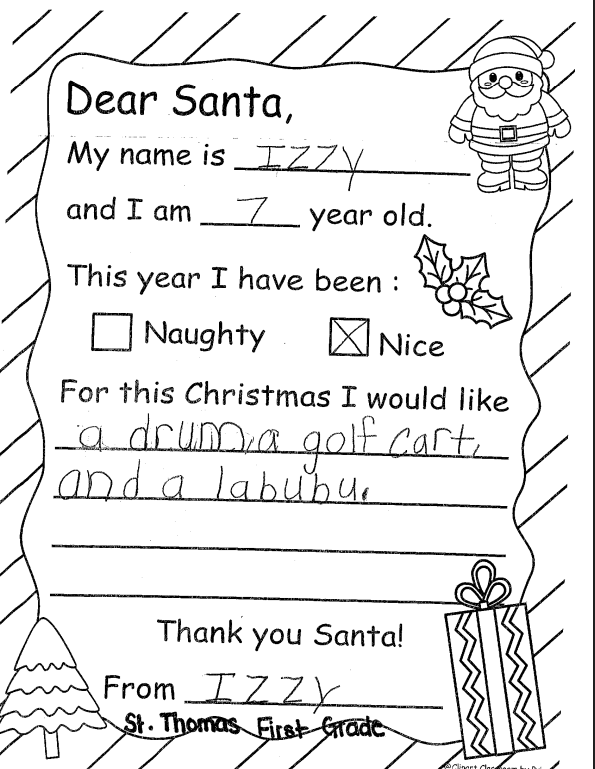 Dear Santa,
My name is Izzy
and I am 7 year old.
This year I have been :
Naughty Nice
For this Christmas I would like
a drum, a golf cart,
and a labubu.
Thank you Santa!
From Izzy
St. Thomas First Grade